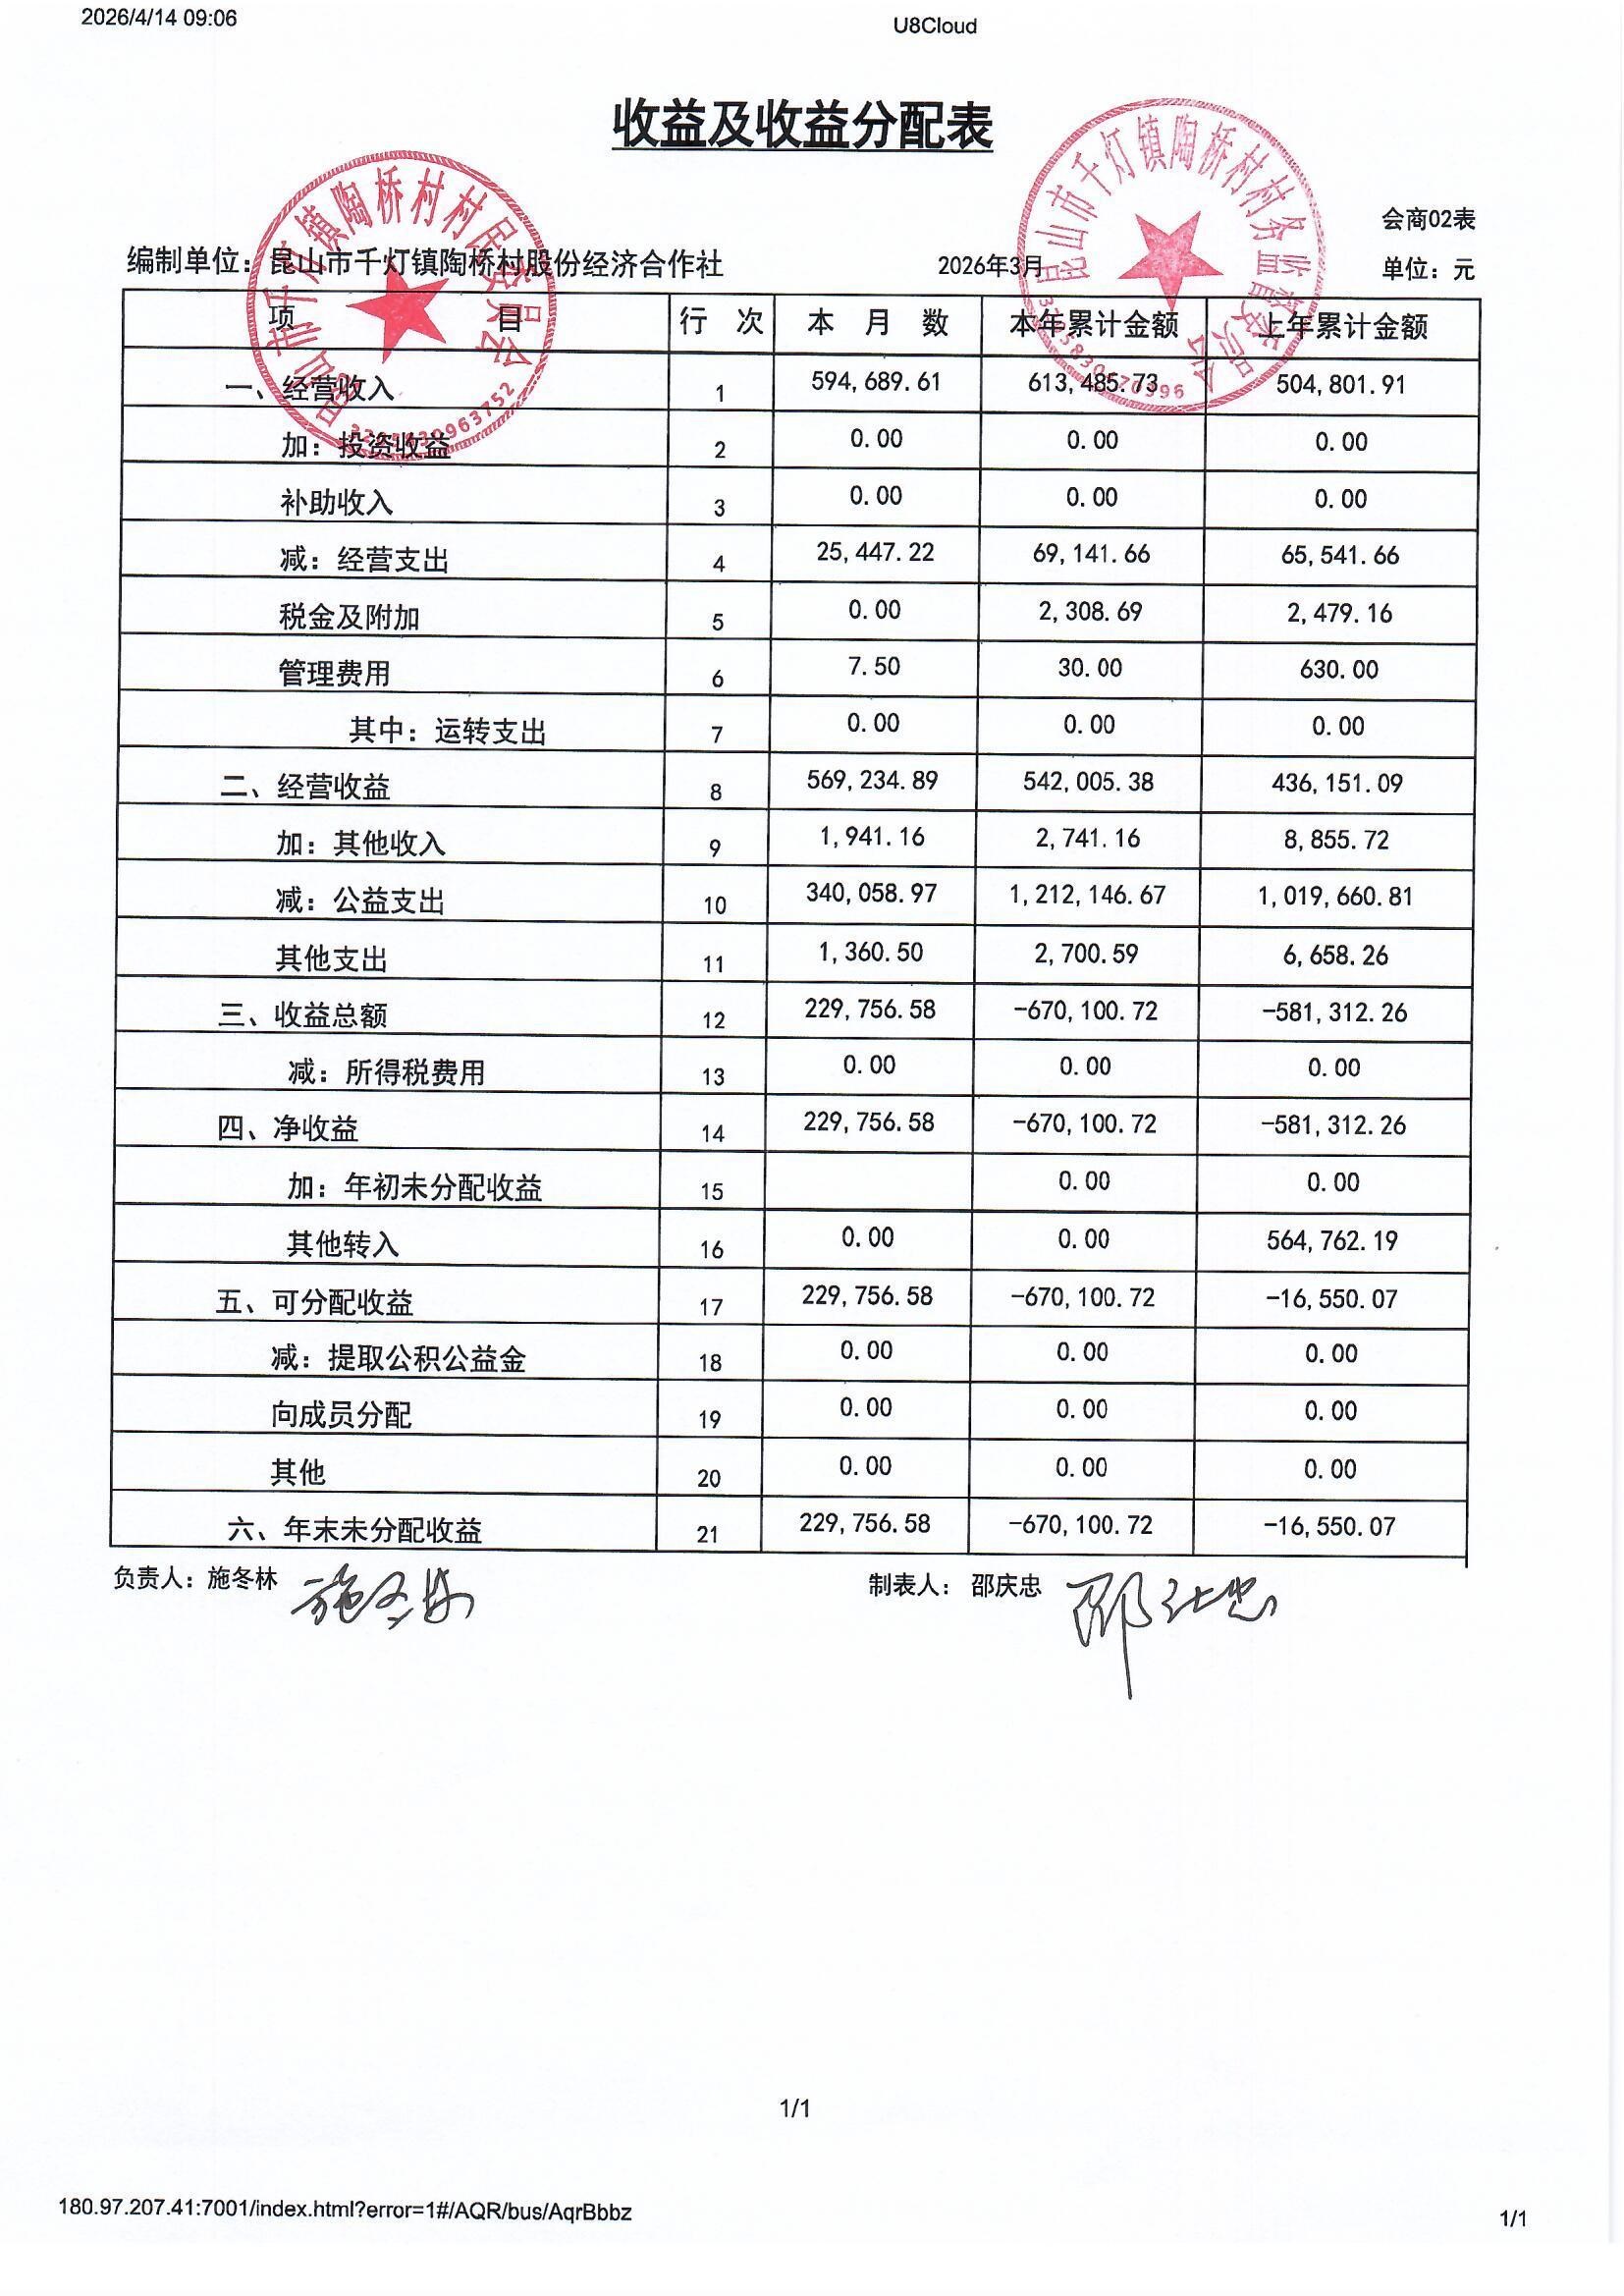 2026/4/14 09:06 U8Cloud
收益及收益分配表
会商02表
编制单位：昆山市千灯镇陶桥村股份经济合作社 2026年3月 单位：元
项 目 行 次 本 月 数 本年累计金额 上年累计金额
一、经营收入 1 594,689.61 613,485.73 504,801.91
加：投资收益 2 0.00 0.00 0.00
补助收入 3 0.00 0.00 0.00
减：经营支出 4 25,447.22 69,141.66 65,541.66
税金及附加 5 0.00 2,308.69 2,479.16
管理费用 6 7.50 30.00 630.00
其中：运转支出 7 0.00 0.00 0.00
二、经营收益 8 569,234.89 542,005.38 436,151.09
加：其他收入 9 1,941.16 2,741.16 8,855.72
减：公益支出 10 340,058.97 1,212,146.67 1,019,660.81
其他支出 11 1,360.50 2,700.59 6,658.26
三、收益总额 12 229,756.58 -670,100.72 -581,312.26
减：所得税费用 13 0.00 0.00 0.00
四、净收益 14 229,756.58 -670,100.72 -581,312.26
加：年初未分配收益 15 0.00 0.00
其他转入 16 0.00 0.00 564,762.19
五、可分配收益 17 229,756.58 -670,100.72 -16,550.07
减：提取公积公益金 18 0.00 0.00 0.00
向成员分配 19 0.00 0.00 0.00
其他 20 0.00 0.00 0.00
六、年末未分配收益 21 229,756.58 -670,100.72 -16,550.07
负责人：施冬林 施冬林 制表人： 邵庆忠 邵庆忠
昆山市千灯镇陶桥村村民委员会
昆山市千灯镇陶桥村村务监督委员会
1/1
180.97.207.41:7001/index.html?error=1#/AQR/bus/AqrBbbz 1/1